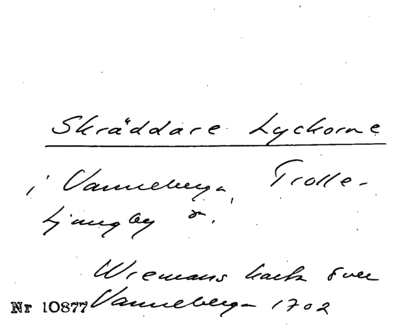 Skräddare Lyckorne
i Vanneberga, Trolle-
Ljungby s.
Wiemans karta över
Nr 10877 Vanneberga 1702